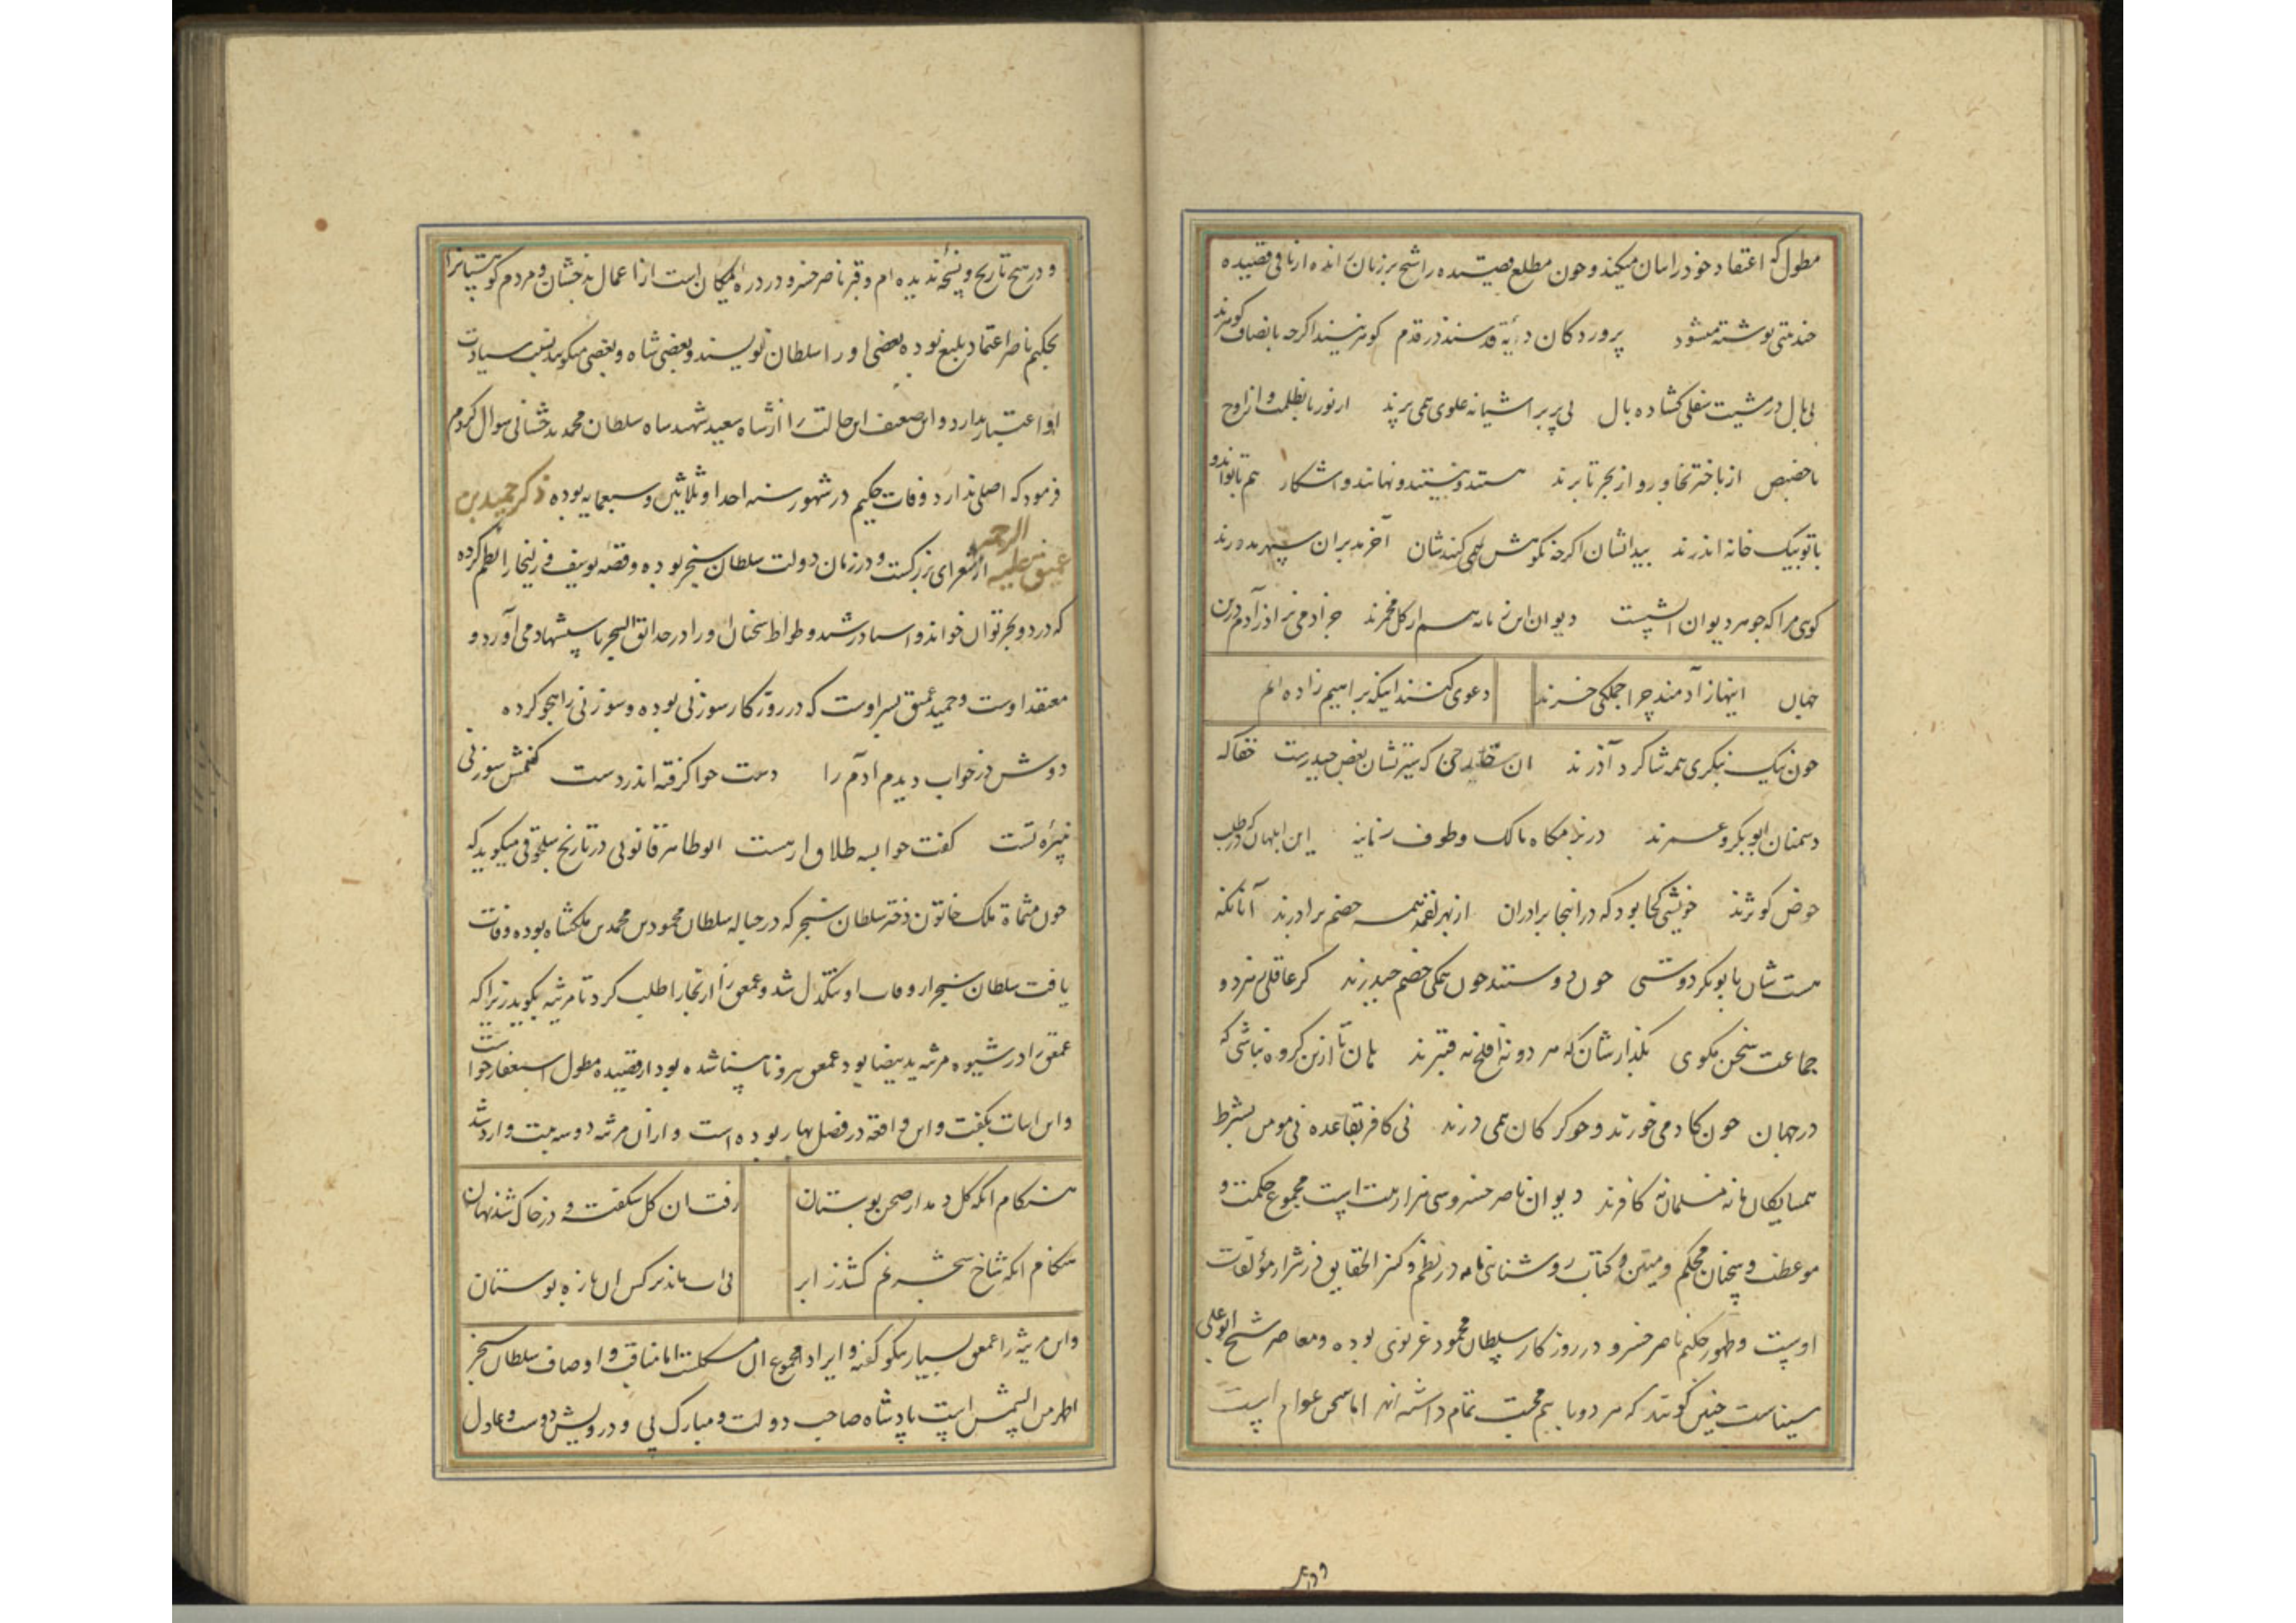 مطول که اعتقاد خود را بیان میکند و چون مطلع قصیده را شیخ بر زبان رانده از باقی قصیده
خدمتی نوشته میشود پروردگان دایهٔ قدسند در قدم کوهر نیند اکرچه باوصاف کوهرند
بی بال در مشیت سفلی کشاده بال بی پر بر اشیانه علوی همی پرند از نور تا بظلمت و از اوج
تا حضیض از باختر بخاور و از بحر تا برند هستند و نیستند و نهانند و اشکار هم با تواند و
با تو بیک خانه اندرند بیدانشان اکرچه نکوهش همی کنندشان آخر مدبران سپهر مدورند
کوی مرا که جوهر دیوان ز اتشست دیوان این زمانه همه از کل مخمرند جز آدمی نزاد ز آدم درین
جهان اینها ز آدمند چرا جملکی خرند دعوی کنند اینکه براهیم زاده ایم
چون نیک بنکری همه شاکرد آذرند ان سنیان که سیرتشان بغض حیدرست حقا که
دشمنان ابوبکر و عمرند در بزمکاه مالک و طوف زبانیه این ابلهان که در طلب
حوض کوثرند خویشی کجا بود که در انجا برادران از بهر لقمه همه خصم برادرند آنانکه
هست شان بابوبکر دوستی چون دوستند چون همکی خصم حیدرند کر عاقلی ز هر دو
جماعت سخن مکوی بکذارشان که هر دو نه افلح نه قنبرند هان تا ازین کروه نباشی که
در جهان چون کاو می خورند و چو کرکان همی درند نی کافر بقاعده نی مومن بشرط
همسایکان ما نه مسلمان نه کافرند دیوان ناصر خسرو سی هزار بیت است مجموع حکمت و
موعظت و سخنان محکم و متین و کتاب روشنائی نامه در نظم و کنز الحقایق در نثر از مؤلفات
اوست و ظهور حکیم ناصر خسرو در روزکار سلطان محمود غزنوی بوده و معاصر شیخ ابو علی
سیناست چنین کویند که هر دو با هم محبت تمام داشته اند اما سخن عوام است
و در هیچ تاریخ و نسخه ندیده ام و قبر ناصر خسرو در دره یمکان است از اعمال بدخشان و مردم کوهستانرا
بحکیم ناصر اعتماد بلیغ بوده بعضی او را سلطان نویسند و بعضی شاه و بعضی میکویند نسب سیادت
او اعتبار ندارد و این ضعیف این حالت را از شاه سعید شهید شاه سلطان محمد بدخشانی سوال کردم
فرمود که اصلی ندارد وفات حکیم در شهور سنه احدا و ثلاثین و سبعمایه بوده ذکر حمید بن
عمیق علیه الرحمه از شعرای بزرکست و در زمان دولت سلطان سنجر بوده و قصه یوسف و زلیخا را نظم کرده
که در دو بحر توان خواند و استاد رشید وطواط سخنان او را در حدائق السحر باستشهاد می آورد و
معتقد اوست و حمید عمیق پسر اوست که در روزکار سوزنی بوده و سوزنی را هجو کرده
دوش در خواب دیدم آدم را دست حوا کرفته اندر دست کفتمش سوزنی
نبیرهٔ تست کفت حوا بسه طلاق ار هست ابوطاهر خاتونی در تاریخ سلجوقی میکوید که
چون ملک خاتون دختر سلطان سنجر که در حباله سلطان محمود بن محمد بن ملکشاه بوده وفات
یافت سلطان سنجر از وفات او تنکدل شد و عمعق را از بخارا طلب کرد تا مرثیه بکوید زیرا که
عمعق را در شیوه مرثیه ید بیضا بود عمعق پیر و نابینا شده بود از قصیده مطول استعفا خواست
و این ابیات بکفت و این واقعه در فصل بهار بوده است و از ان مرثیه دو سه بیت وارد شد
هنکام انکه کل دمد از صحن بوستان رفت ان کل شکفته و در خاک شد نهان
هنکام انکه شاخ شجر نم کشد ز ابر بی اب ماند نرکس ان تازه بوستان
و این مرثیه را عمعق بسیار نیکو کفته و ایراد مجموع ان مشکلست اما مناقب و اوصاف سلطان سنجر
اظهر من الشمس است پادشاه صاحب دولت و مبارک پی و درویش دوست و عادل